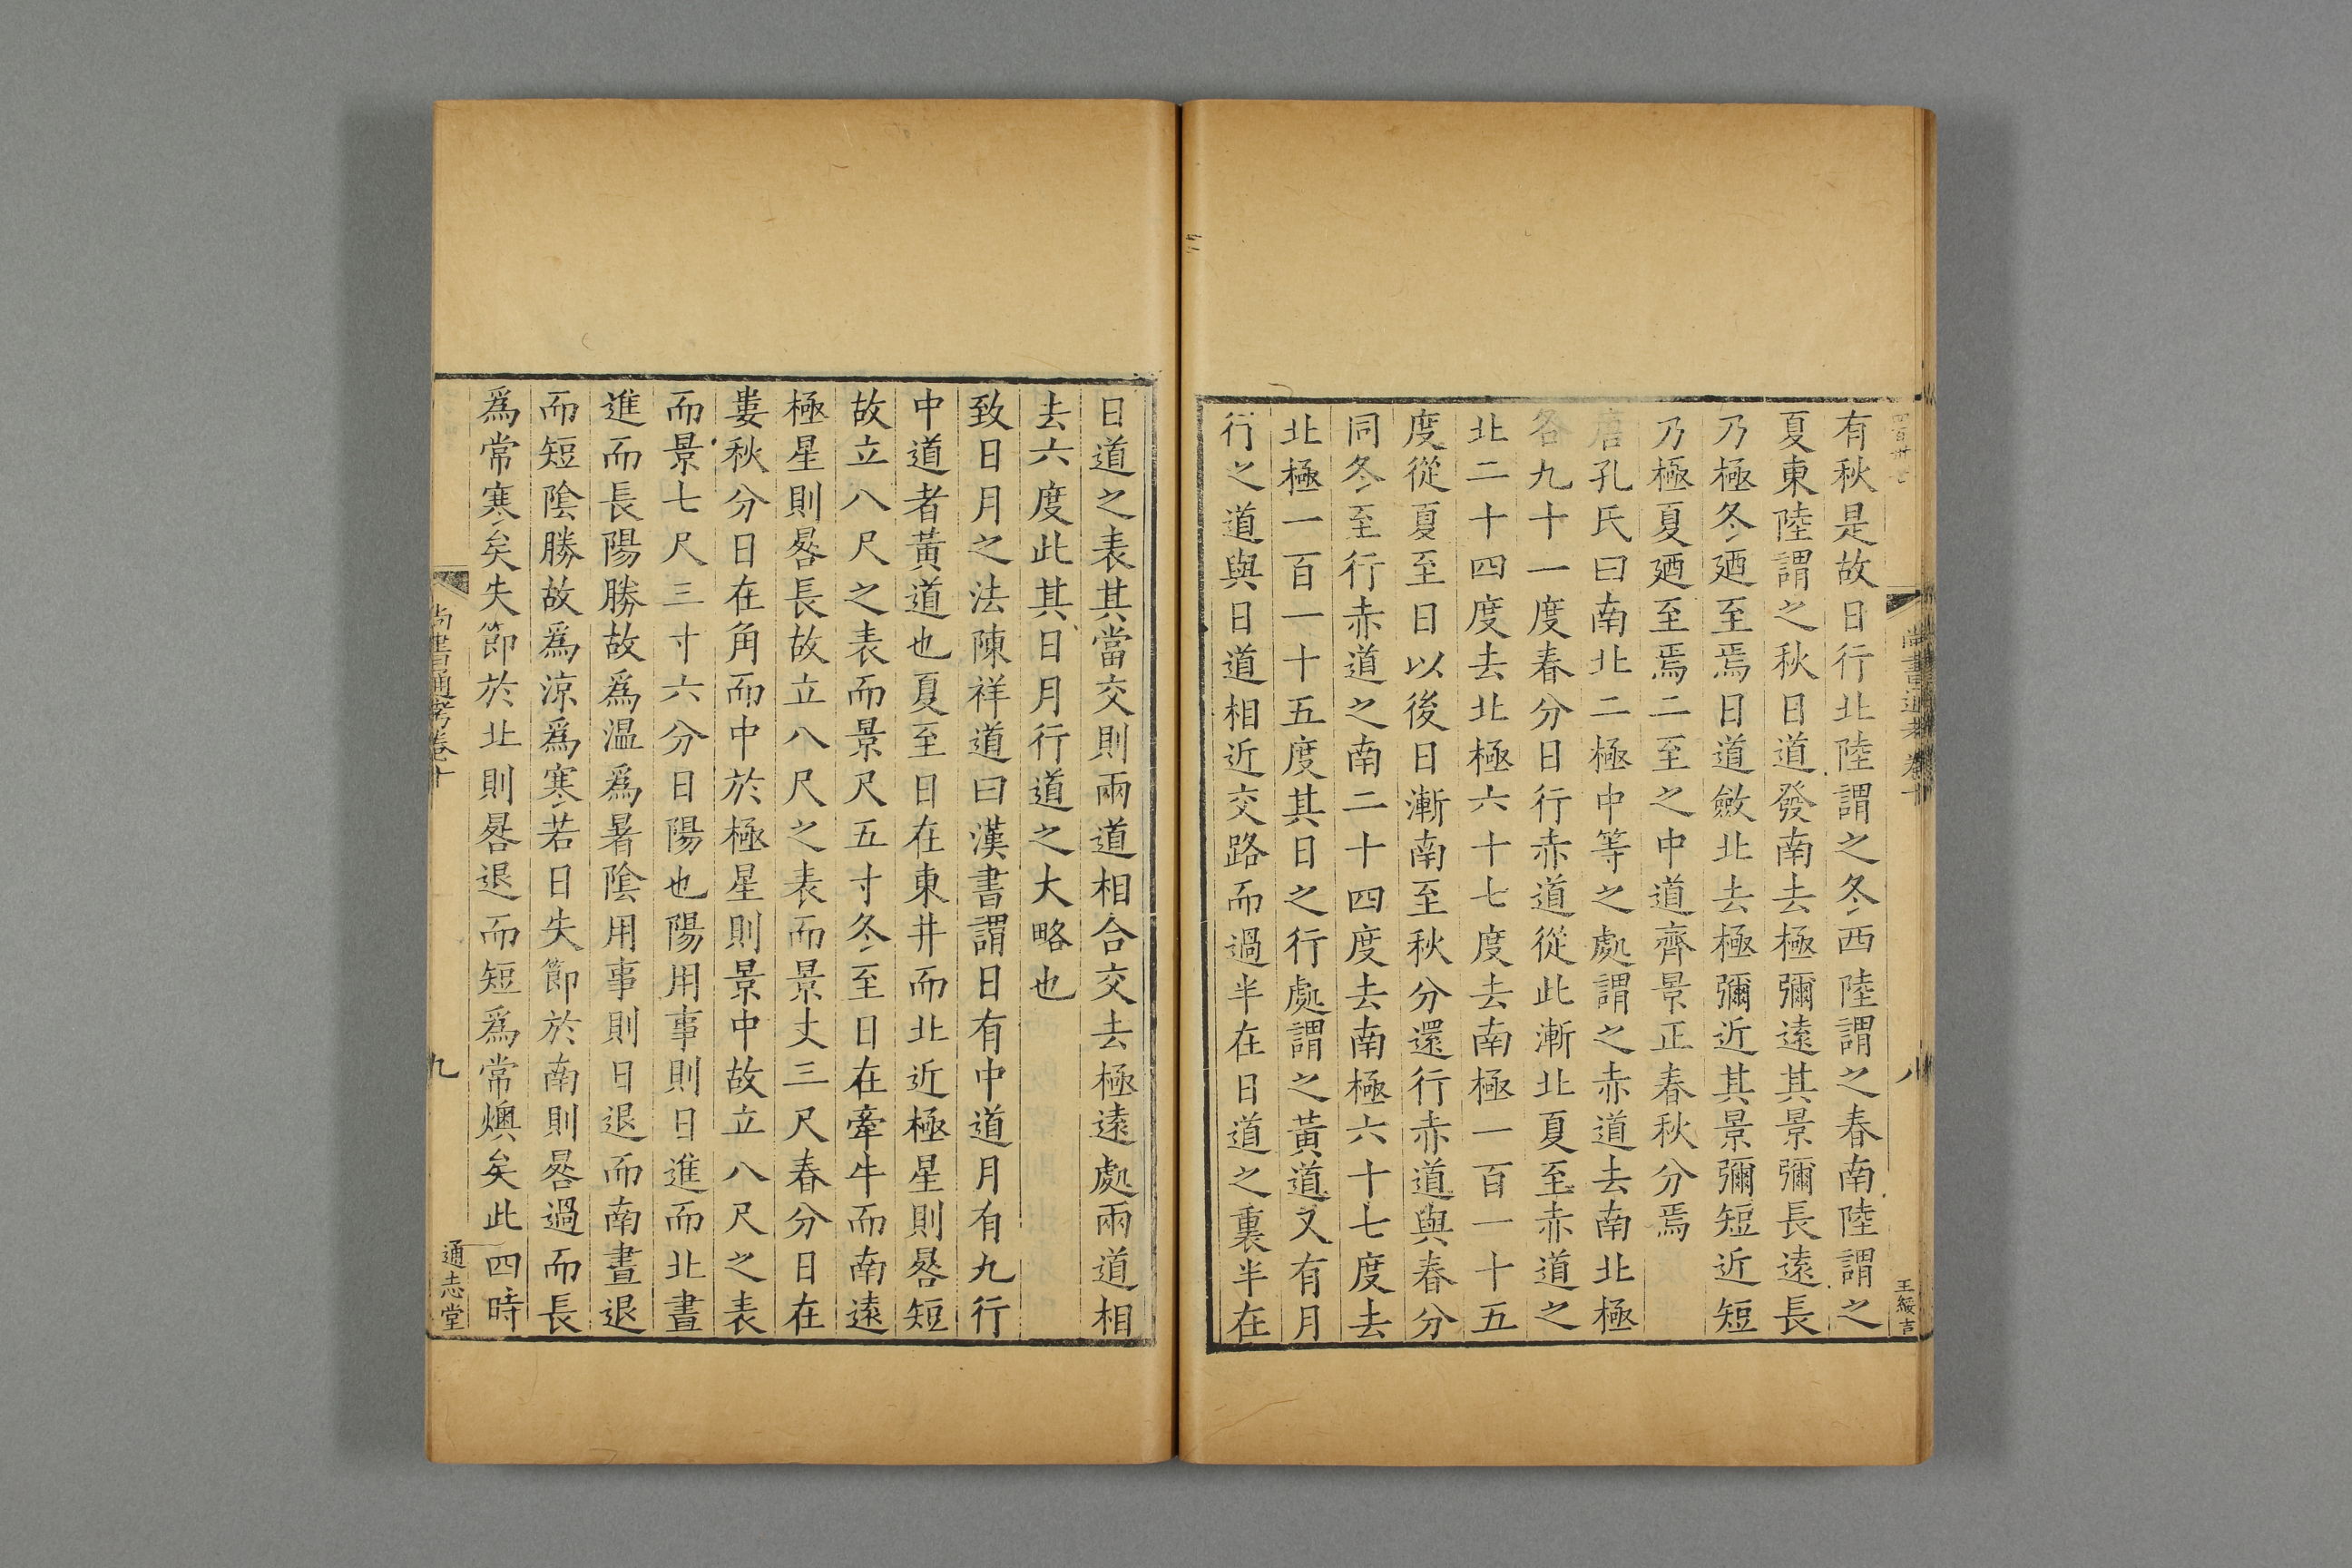 尚書通考 卷十
八
王綏吉
有秋是故日行北陸謂之冬西陸謂之春南陸謂之
夏東陸謂之秋日道發南去極彌遠其景彌長遠長
乃極冬廼至焉日道斂北去極彌近其景彌短近短
乃極夏廼至焉二至之中道齊景正春秋分焉
唐孔氏曰南北二極中等之處謂之赤道去南北極
各九十一度春分日行赤道從此漸北夏至赤道之
北二十四度去北極六十七度去南極一百一十五
度從夏至日以後日漸南至秋分還行赤道與春分
同冬至行赤道之南二十四度去南極六十七度去
北極一百一十五度其日之行處謂之黃道又有月
行之道與日道相近交路而過半在日道之裏半在
日道之表其當交則兩道相合交去極遠處兩道相
去六度此其日月行道之大略也
致日月之法陳祥道曰漢書謂日有中道月有九行
中道者黃道也夏至日在東井而北近極星則晷短
故立八尺之表而景尺五寸冬至日在牽牛而南遠
極星則晷長故立八尺之表而景丈三尺春分日在
婁秋分日在角而中於極星則景中故立八尺之表
而景七尺三寸六分日陽也陽用事則日進而北晝
進而長陽勝故爲温爲暑陰用事則日退而南晝退
而短陰勝故爲涼爲寒若日失節於南則晷過而長
爲常寒矣失節於北則晷退而短爲常燠矣此四時
尚書通考卷十
九
通志堂